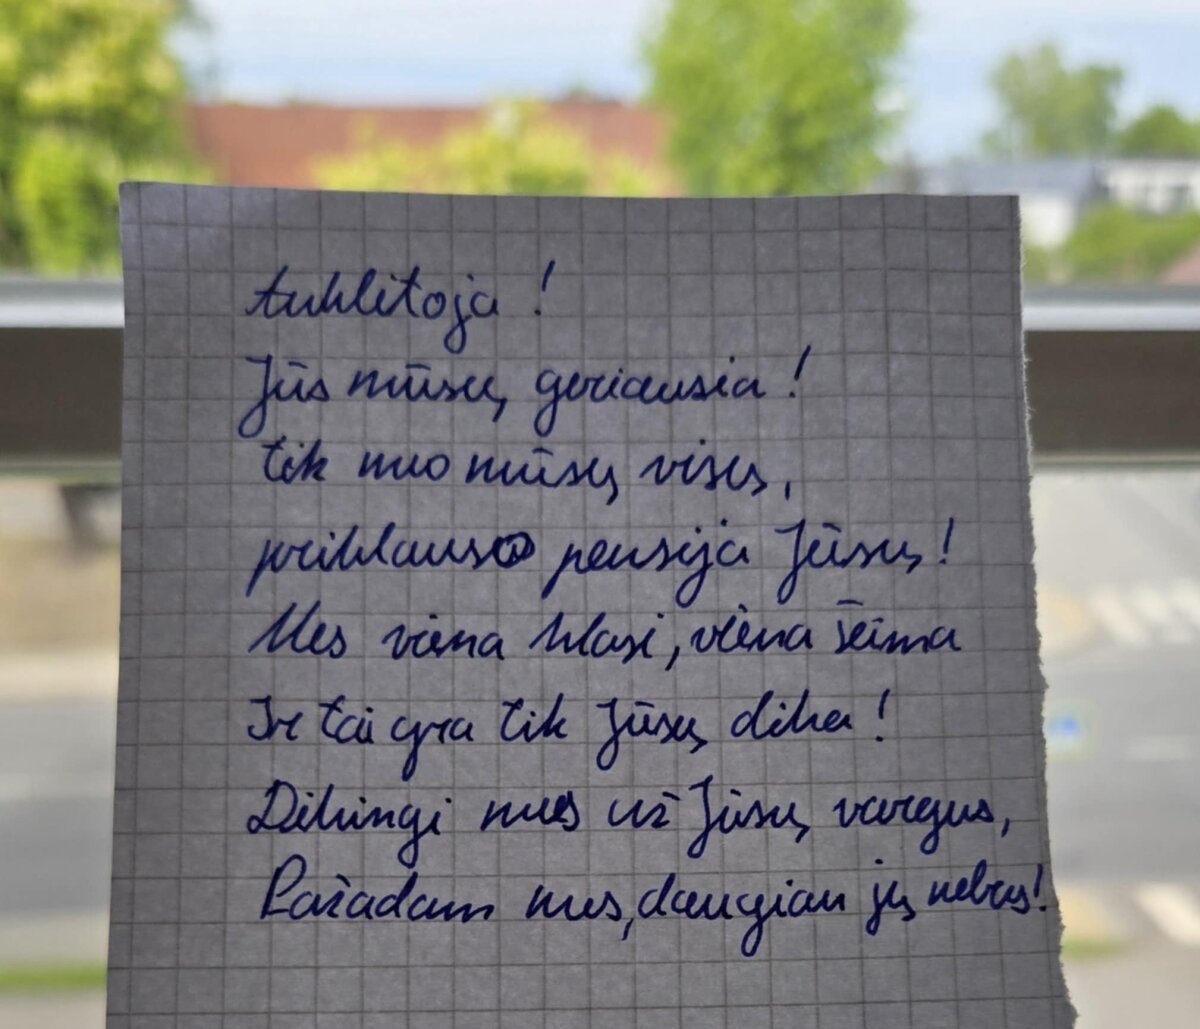 Auklėtoja!
Jūs mūsų geriausia!
tik nuo mūsų visų,
priklauso pensija Jūsų!
Mes viena klasė, viena šeima
Ir tai yra tik Jūsų dėka!
Dėkingi mes už Jūsų vargus,
Pažadam mes, daugiau jų nebus!